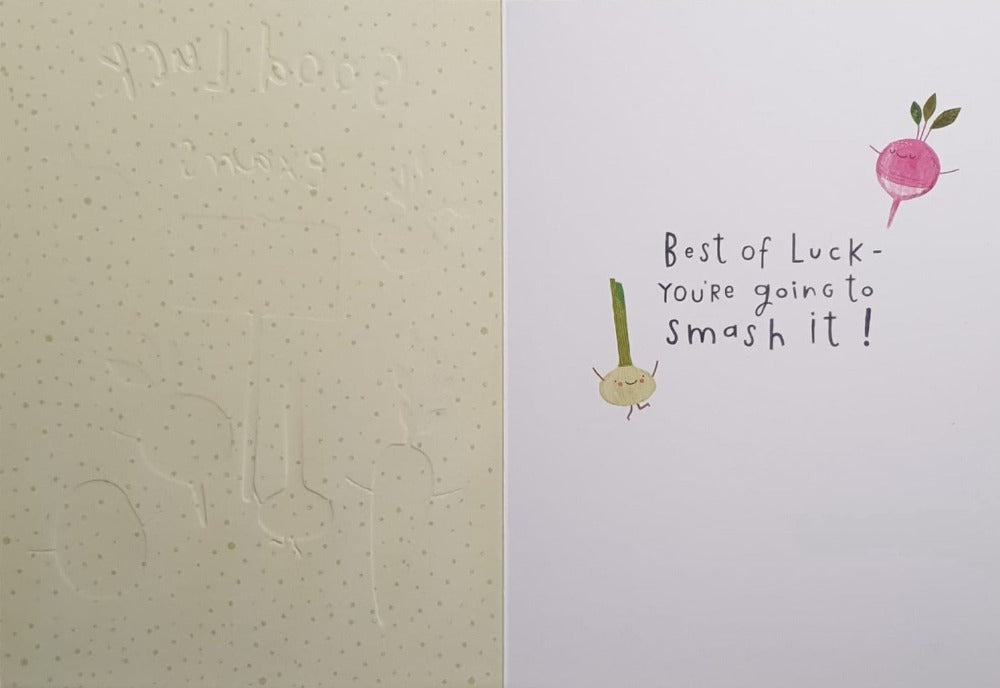 Good Luck
exams
Best of Luck -
YOU'RE going to
smash it !